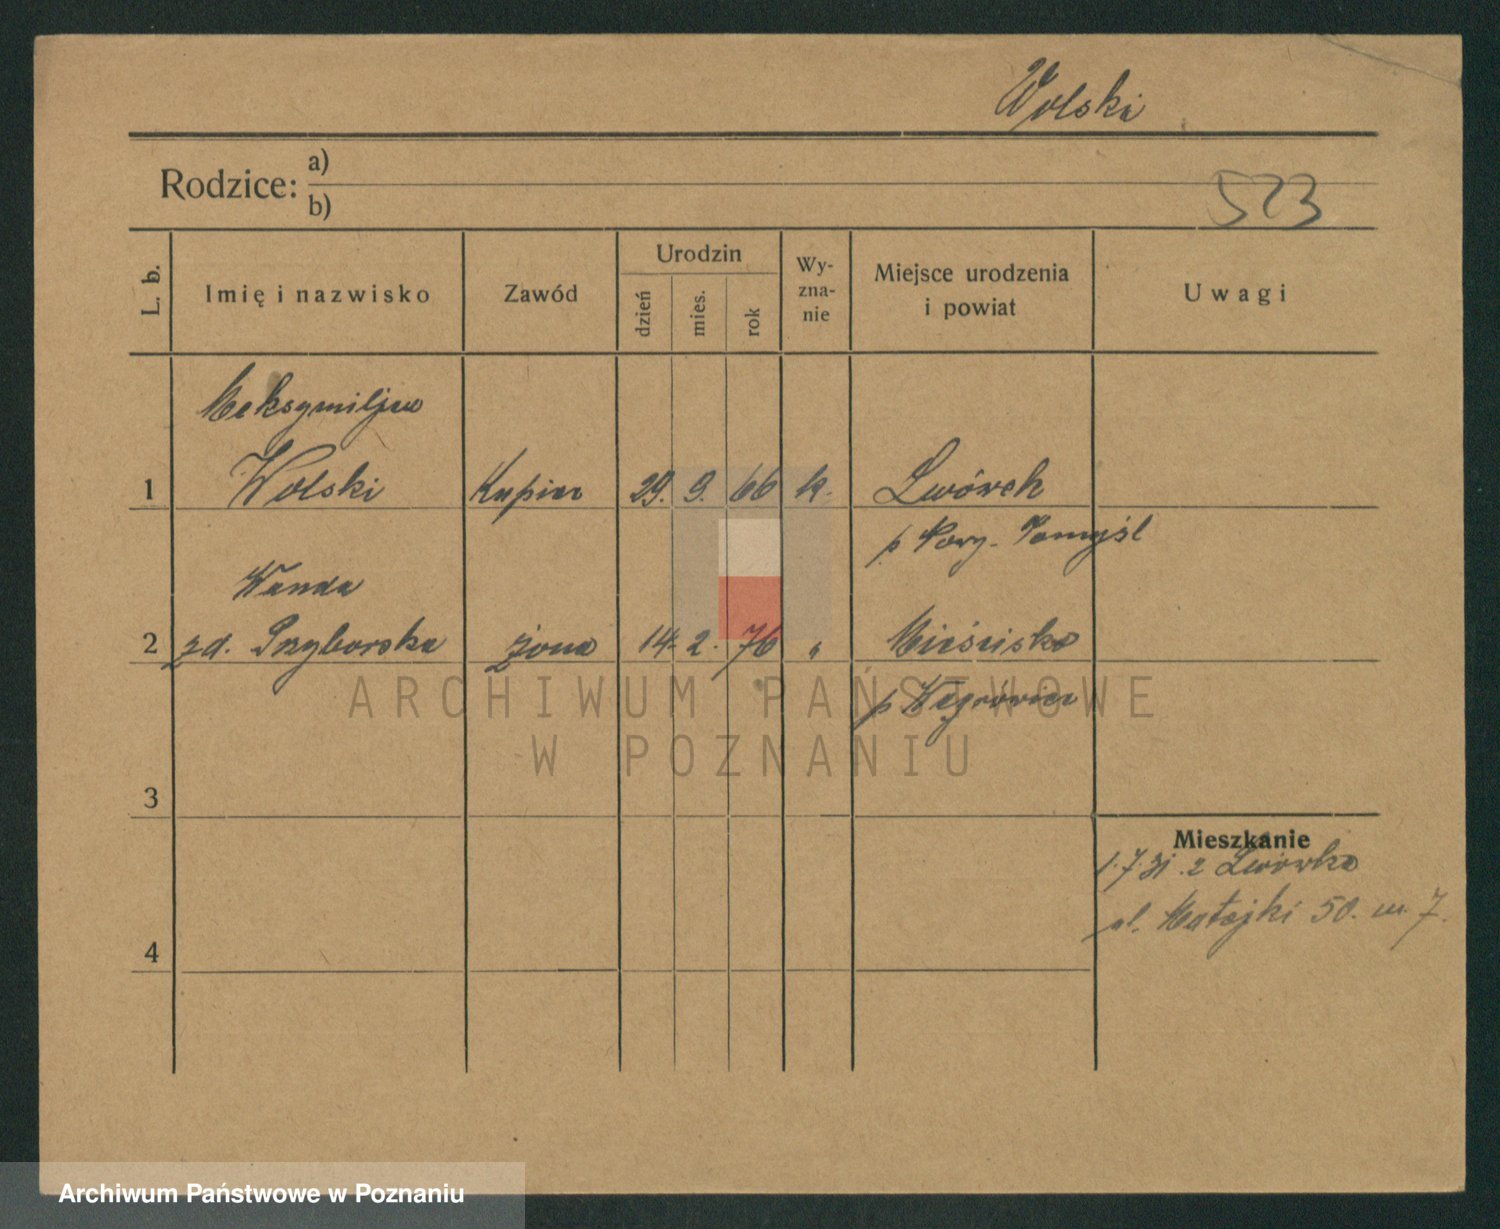 Wolski
Rodzice: a)
b)
523
L. b.
Imię i nazwisko
Zawód
Urodzin
dzień
mies.
rok
Wy-
zna-
nie
Miejsce urodzenia
i powiat
Uwagi
Maksymiljan
1 Wolski Kupiec 29. 9. 66 k. Lwówek
p Nowy-Tomyśl
Wanda
2 zd. Przyborska żona 14. 2. 76 " Mieścisko
p Wągrówiec
ARCHIWUM PAŃSTWOWE
W POZNANIU
3
Mieszkanie
1.7.31. z Lwówka
ul. Matejki 50. m. 7.
4
Archiwum Państwowe w Poznaniu